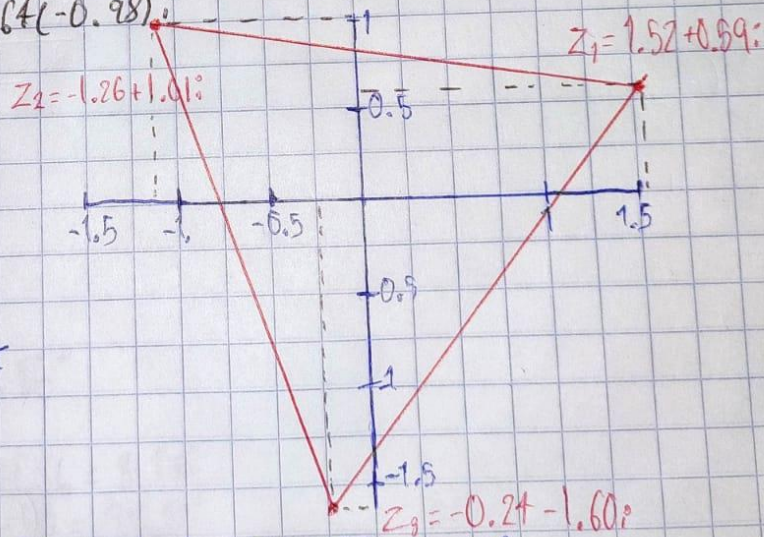 64(-0.98)i
1
Z₁=1.52+0.59i
Z₂=-1.26+1.01i
0.5
-1.5 -1. -0.5 1 1.5
-0.5
-1
-1.5
Z₃=-0.24-1.60i